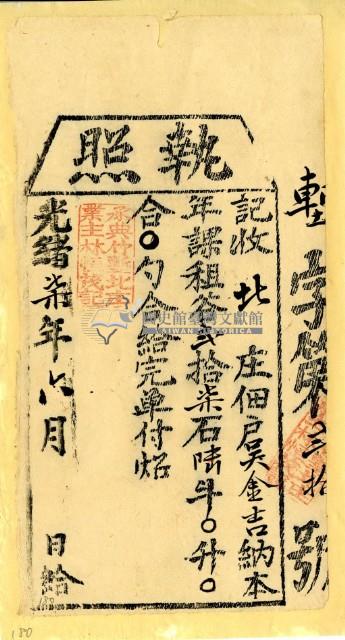 執照
記收北庄佃戶吳金吉納本
年課租谷弍拾柒石陸斗〇升〇
合〇勺合給完單付炤
承典竹塹北庄
業主林戳記
光緒柒年六月 日給
塹字第叁拾號
國史館臺灣文獻館
TAIWAN HISTORICA
180